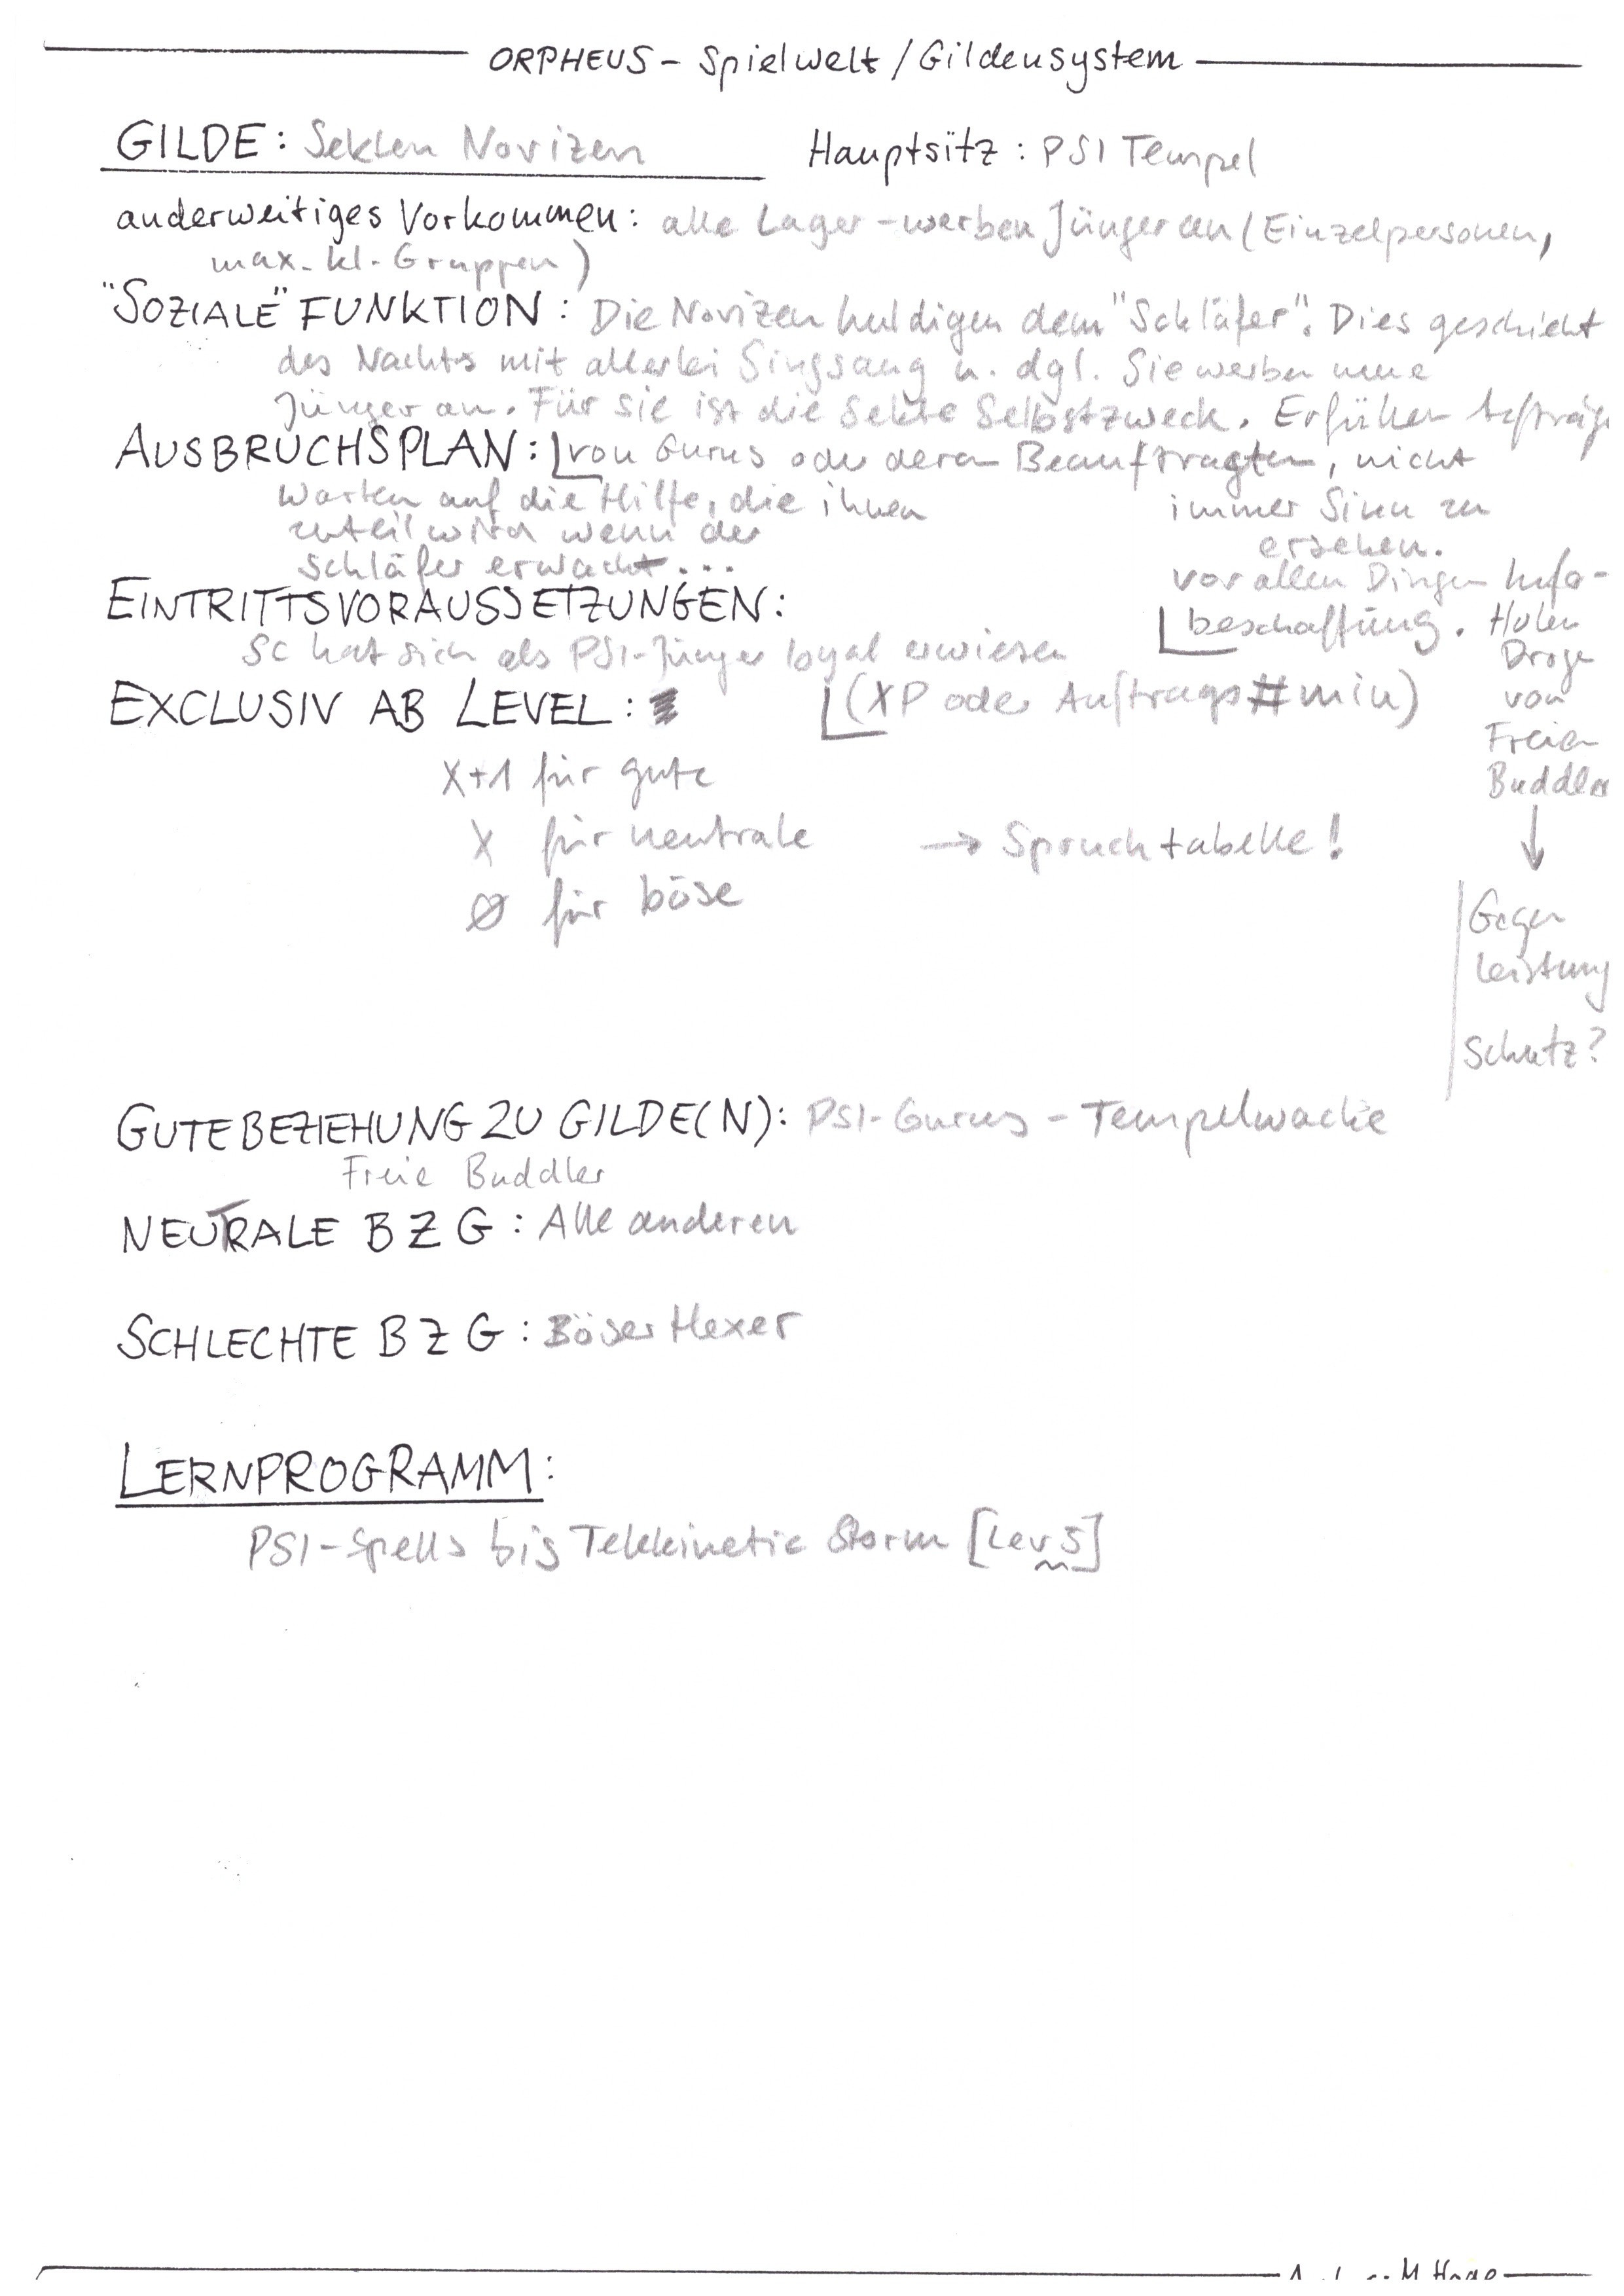 ORPHEUS - Spielwelt / Gildensystem
GILDE: Sekten Novizen Hauptsitz: PSI Tempel
anderweitiges Vorkommen: alle Lager - werben Jünger an (Einzelpersonen,
max. kl. Gruppen)
"SOZIALE" FUNKTION: Die Novizen huldigen dem "Schläfer". Dies geschieht
des Nachts mit allerlei Singsang u. dgl. Sie werben neue
Jünger an. Für sie ist die Sekte Selbstzweck. Erfüllen Aufträge
von Gurus oder deren Beauftragten, nicht
immer Sinn zu
ersehen.
vor allen Dingen Info-
beschaffung. Holen
Droge
von
Freien
Buddler
↓
Gegen
leistung
Schutz?
AUSBRUCHSPLAN:
Warten auf die Hilfe, die ihnen
zuteil wird wenn der
Schläfer erwacht...
EINTRITTSVORAUSSETZUNGEN:
SC hat sich als PSI-Jünger loyal erwiesen
(XP oder Auftrags#min)
EXCLUSIV AB LEVEL:
X+1 für gute
X für neutrale → Spruchtabelle!
Ø für böse
GUTE BEZIEHUNG ZU GILDE(N): PSI-Gurus - Tempelwache
Freie Buddler
NEUTRALE B Z G: Alle anderen
SCHLECHTE B Z G: Böser Hexer
LERNPROGRAMM:
PSI-Spells bis Telekinetic Storm [Lev 5]